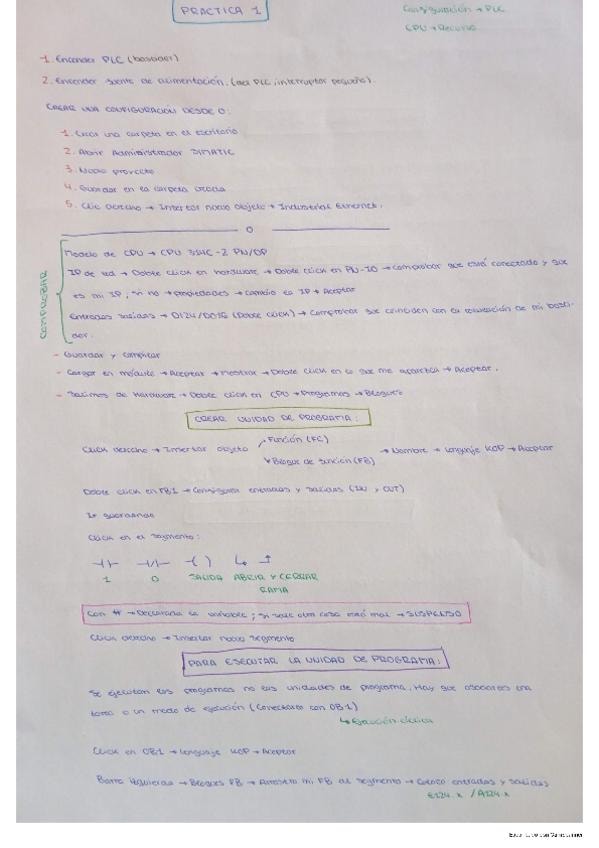 PRACTICA 1
Configuración → PLC
CPU → Recurso
1. Encender PLC (bastidor)
2. Encender fuente de alimentación. (del PLC, interruptor pequeño).
CREAR UNA CONFIGURACIÓN DESDE 0:
1. Crear una carpeta en el escritorio
2. Abrir Administrador SIMATIC
3. Nuevo proyecto
4. Guardar en la carpeta creada
5. Clic derecho → Insertar nuevo objeto → Industrial Ethernet.
0
COMPROBAR
Modelo de CPU → CPU 314C-2 PN/DP
IP de red → Doble click en hardware → Doble click en PN-IO → comprobar que está conectado y que
es mi IP, si no → propiedades → cambio la IP → Aceptar
Entradas salidas → DI24/DO16 (Doble click) → Comprobar que coinciden con la numeración de mi basti-
dor.
- Guardar y compilar
- Cargar en módulo → Aceptar → Mostrar → Doble click en lo que me aparezca → Aceptar.
- Salimos de hardware → Doble click en CPU → Programas → Bloques
CREAR UNIDAD DE PROGRAMA:
Click derecho → Insertar objeto
Función (FC)
Bloque de función (FB)
→ Nombre → Lenguaje KOP → Aceptar
Doble click en FB1 → Configurar entradas y salidas (IN y OUT)
Ir guardando
Click en el segmento:
1 0 SALIDA ABRIR Y CERRAR
RAMA
Con # → Declarada la variable; si sale otra cosa está mal → SUSPENSO
Click derecho → Insertar nuevo segmento
PARA EJECUTAR LA UNIDAD DE PROGRAMA:
Se ejecutan los programas no las unidades de programa. Hay que asociarles una
tarea o un modo de ejecución (Conectarlo con OB1)
↳ Ejecución cíclica
Click en OB1 → Lenguaje KOP → Aceptar
Barra izquierda → Bloques FB → Arrastro mi FB al segmento → Coloco entradas y salidas
E124.x / A124.x